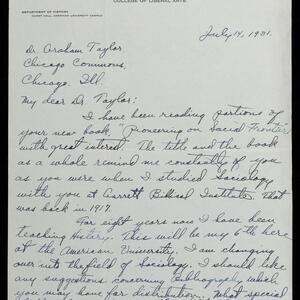 COLLEGE OF LIBERAL ARTS
DEPARTMENT OF HISTORY
HURST HALL, AMERICAN UNIVERSITY CAMPUS
July 14, 1931.
Dr. Graham Taylor
Chicago Commons,
Chicago, Ill.
My dear Dr. Taylor:
I have been reading portions of
your new book, "Pioneering on Social Frontiers"
with great interest. The title and the book
as a whole remind me constantly of you
as you were when I studied Sociology
with you at Garrett Biblical Institute. That
was back in 1917.
For eight years now I have been
teaching History. This will be my 6th here
at the American University. I am changing
over into the field of Sociology. I should like
any suggestions concerning Bibliography which
you may have for distribution. What special